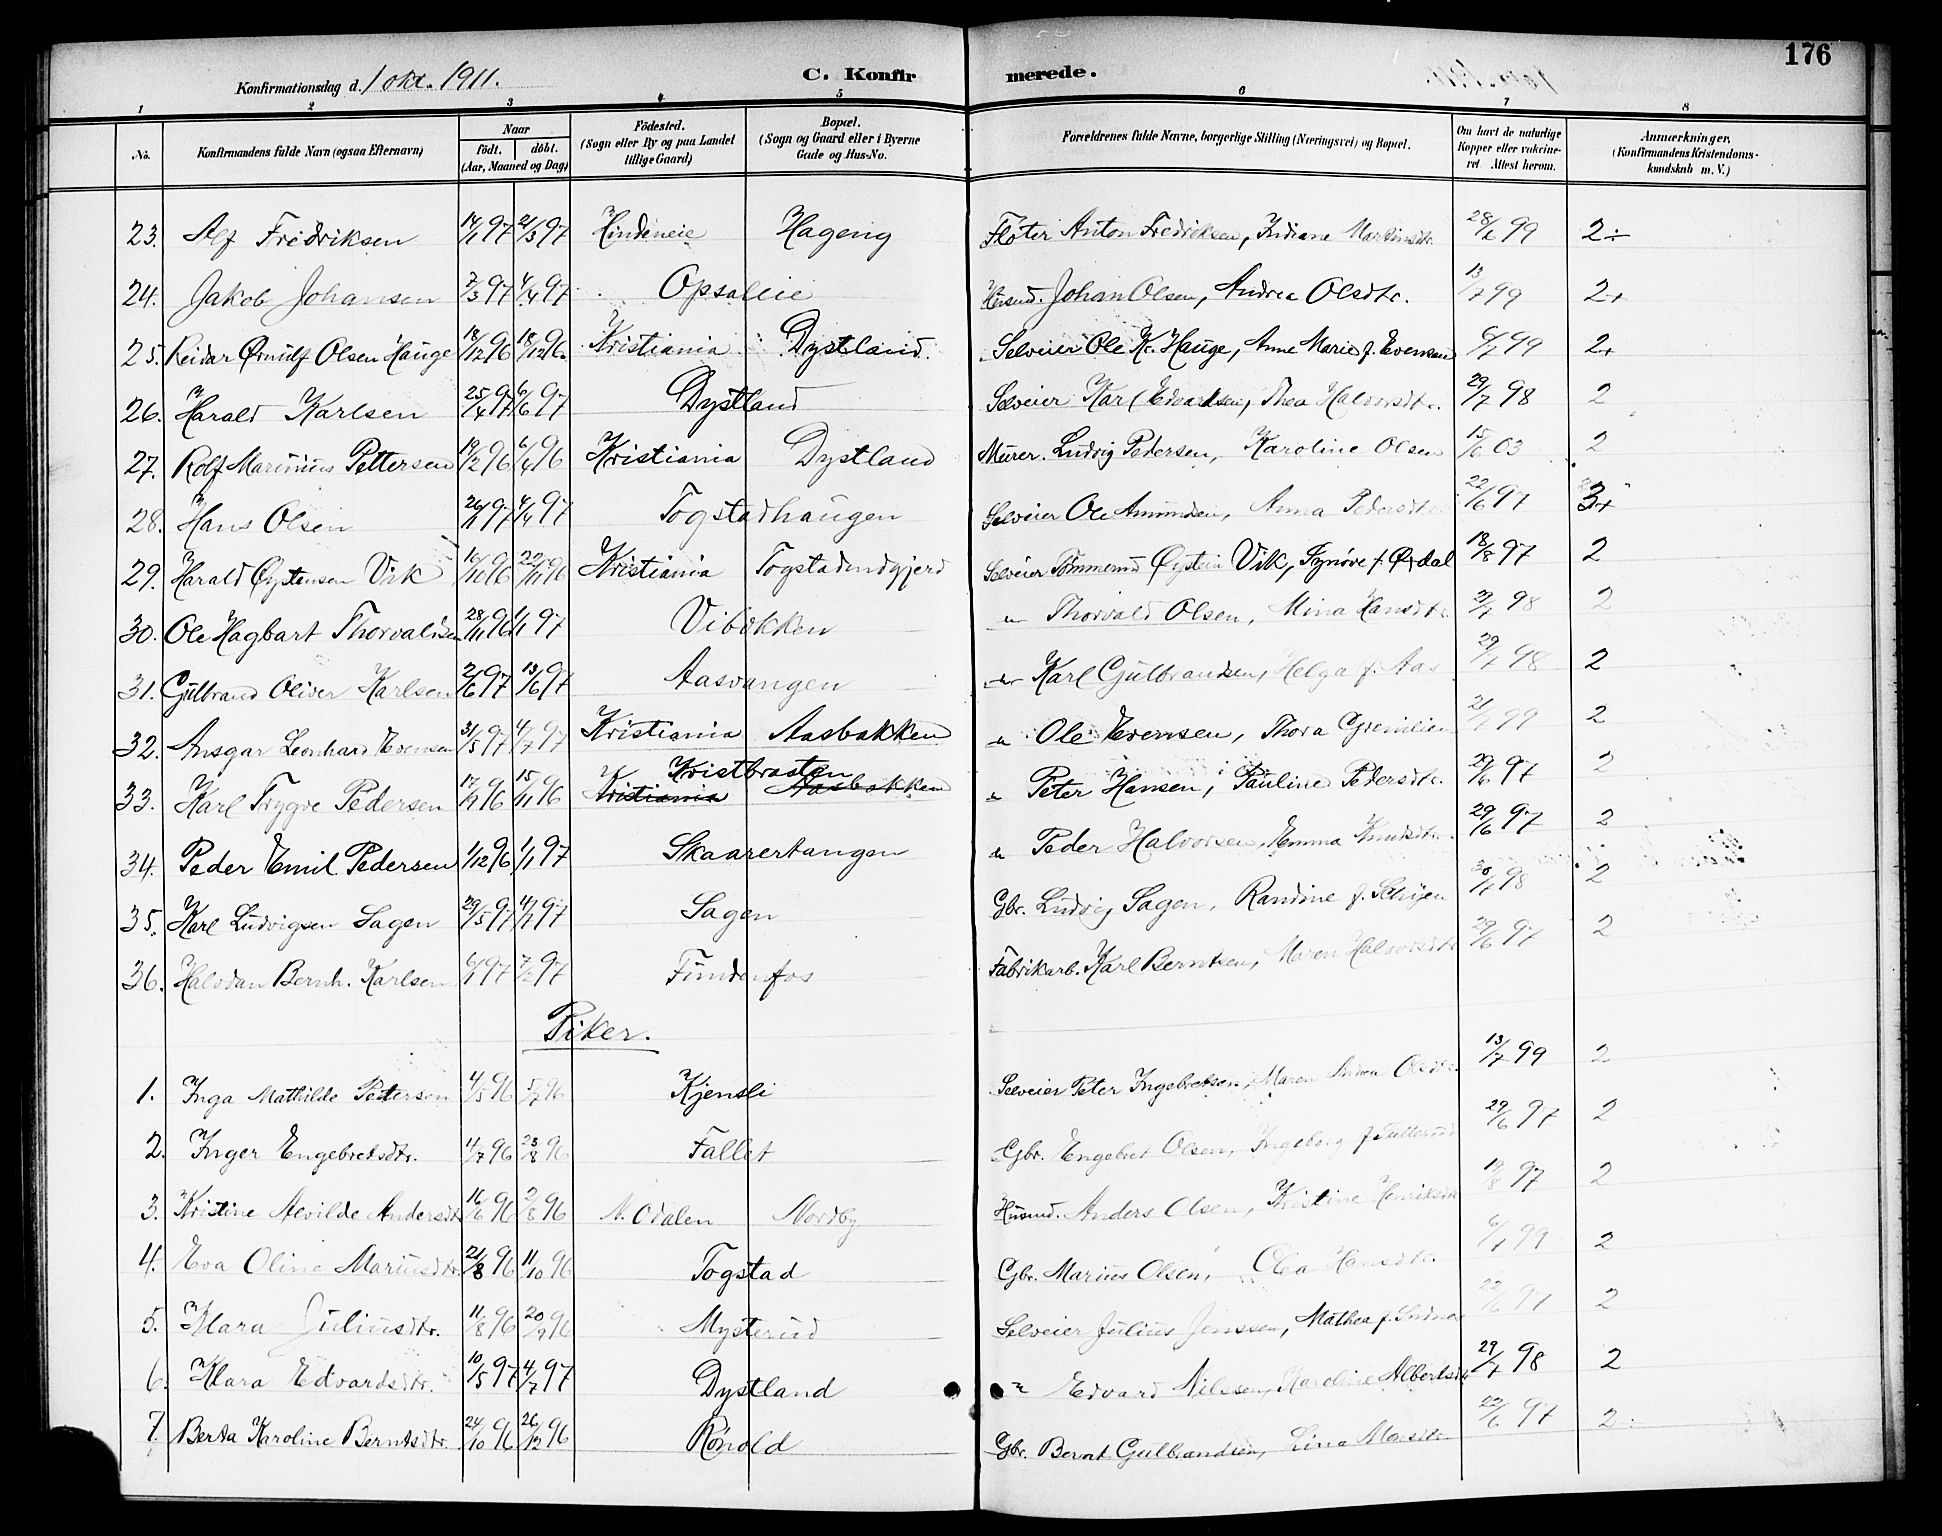 176
Konfirmationsdag d. 1 okt. 1911.
C. Konfirmerede.
1 2 3 4 5 6 7 8
No.
Konfirmandens fulde Navn (ogsaa Efternavn)
Naar
födt. döbt.
(Aar, Maaned og Dag)
Födested.
(Sogn eller By og paa Landet tillige Gaard)
Bopæl.
(Sogn og Gaard eller i Byerne Gade og Hus-No.
Forældrenes fulde Navne, borgerlige Stilling (Næringsvei) og Bopæl.
Om havt de naturlige Kopper eller vakcineret Attest herom.
Anmærkninger,
(Konfirmandens Kristendomskundskab m. V.)
23. Alf Fredriksen 14/1 97 21/3 97 Hindeneie Hageng Fløter Anton Fredriksen, Indiane Martinsdtr. 28/6 99 2÷
24. Jakob Johansen 7/3 97 4/4 97 Opsaleie Husmd. Johan Olsen, Andrea Olsdtr. 13/7 99 2+
25. Reidar Ørnulf Olsen Hauge 18/12 96 18/12 96 Kristiania Dystland. Selveier Ole K. Hauge, Anne Marie f. Evensen 6/7 99 2+
26. Harald Karlsen 25/4 97 6/6 97 Dystland Selveier Karl Edvardsen, Thea Halvorsdtr. 29/7 98 2
27. Rolf Marinius Pettersen 19/2 96 6/4 96 Kristiania Dystland Murer. Ludvig Pedersen, Karoline Olsen 15/6 03 2
28. Hans Olsen 26/1 97 4/4 97 Togstadhaugen Selveier Ole Amundsen, Anna Pedersdtr. 22/6 97 3+
29. Harald Øystensen Vik 16/10 96 22/11 96 Kristiania Togstadndgjerd Selveier Tømmermd Øystein Vik, Synøve f. Ørdal 18/8 97 2
30. Ole Hagbart Thorvaldsen 28/11 96 1/1 97 Vibakken — " — Thorvald Olsen, Mina Hansdtr. 98 2
31. Gulbrand Oliver Karlsen 2/6 97 13/6 97 Aasvangen — " — Karl Gulbrandsen, Helga f. Aas 29/7 98 2
32. Ansgar Leonhard Evensen 31/5 97 4/7 97 Kristiania Aasbakken " Ole Evensen, Thora Grenilien 21/7 99 2
33. Karl Trygve Pedersen 17/9 96 15/11 96 Kristbraaten Kristiania Aasbakken " Peter Hansen, Pauline Pedersdtr. 29/6 97 2
34. Peder Emil Pedersen 1/12 96 1/1 97 Skaarertangen " Peder Halvorsen, Emma Knudsdtr. 29/6 97 2
35. Karl Ludvigsen Sagen 29/5 97 4/7 97 Sagen Gbr. Ludvig Sagen, Randine f. Schøjen 30/7 98 2
36. Halvdan Bernh. Karlsen 6/1 97 7/2 97 Fundenfos Fabrikarb. Karl Berntsen, Maren Halvorsdtr. 29/6 97 2
Piker.
1. Inga Mathilde Petersen 4/5 96 5/7 96 Kjensli Selveier Peter Ingebretsen, Maren Andrea Olsdtr. 13/7 99 2
2. Inger Engebretsdtr. 11/7 96 23/8 96 Fallet Gbr. Engebret Olsen, Ingeborg f. Sætterud 29/6 97 2
3. Kristine Alvilde Andersdtr 16/6 96 2/8 96 N. Odalen Nordby Husmd. Anders Olsen, Kristine Henriksdtr 19/8 97 2
4. Eva Oline Mariusdtr. 21/8 96 11/10 96 Togstad Gbr. Marius Olsen, Olea Hansdtr. 6/7 99 2
5. Klara Juliusdtr. 11/8 96 20/9 96 Mysterud Selveier Julius Jenssen, Mathea f. 22/6 97 2
6. Klara Edvardsdtr. 10/5 97 4/7 97 Dystland " Edvard Nilssen, Karoline Albertsdtr 29/7 98 2
7. Berta Karoline Berntsdtr. 24/10 96 26/12 96 Rönold Gbr. Bernt Gulbrandsen, Lina 22/6 97 2